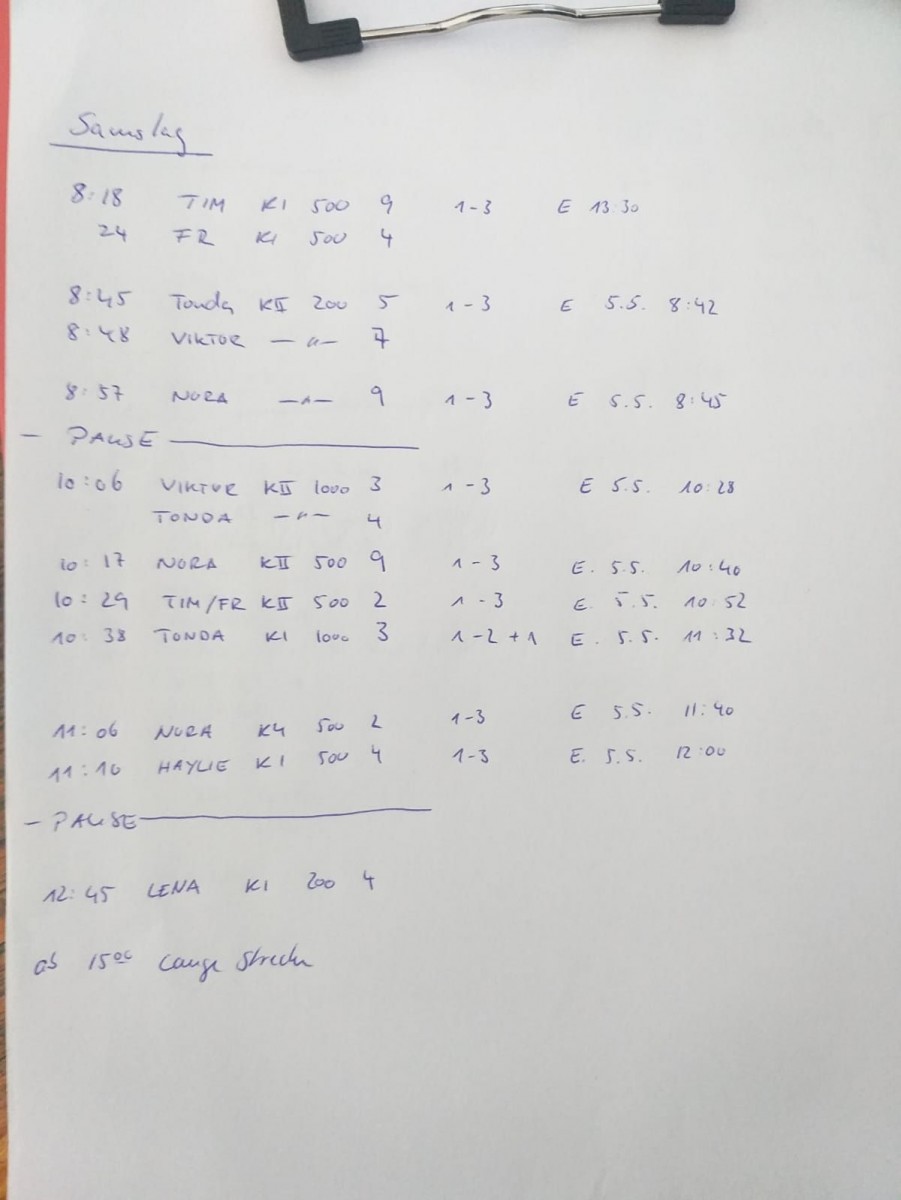 Samstag
8:18 TIM K1 500 9 1-3 E 13:30
24 FR K1 500 4
8:45 Tonda KII 200 5 1-3 E 5.5. 8:42
8:48 VIKTOR —"— 7
8:57 NORA —"— 9 1-3 E 5.5. 8:45
- PAUSE
10:06 VIKTOR KII 1000 3 1-3 E 5.5. 10:28
TONDA —"— 4
10:17 NORA KII 500 9 1-3 E. 5.5. 10:40
10:29 TIM/FR KII 500 2 1-3 E. 5.5. 10:52
10:38 TONDA K1 1000 3 1-2+1 E. 5.5. 11:32
11:06 NORA K4 500 2 1-3 E 5.5. 11:40
11:10 HAYLIE K1 500 4 1-3 E. 5.5. 12:00
- PAUSE
12:45 LENA K1 200 4
ab 1500 Lange Strecke